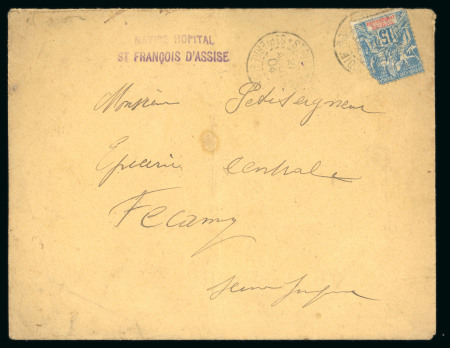 NAVIRE HOPITAL
ST FRANÇOIS D'ASSISE
15
Monsieur Petitseigneur
Epicerie Centrale
Fecamp
Seine Inf